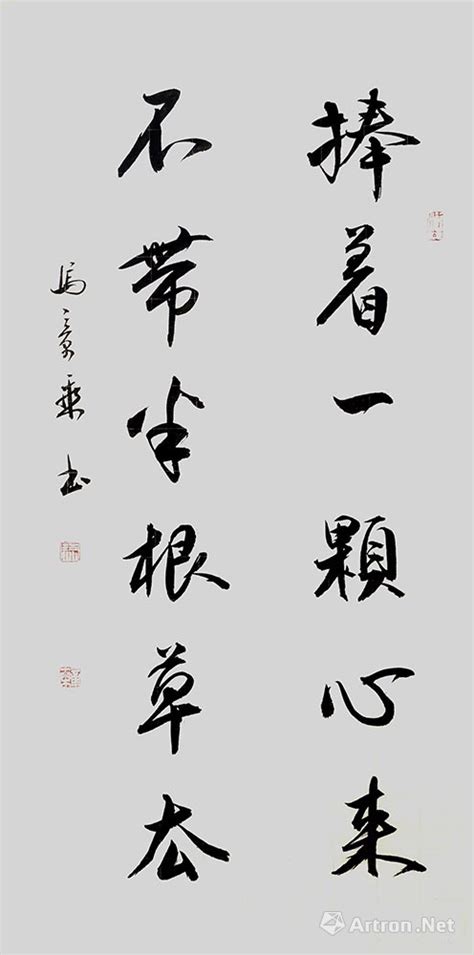 捧着一顆心来
不帶半根草去
馬章乘书
Artron.Net